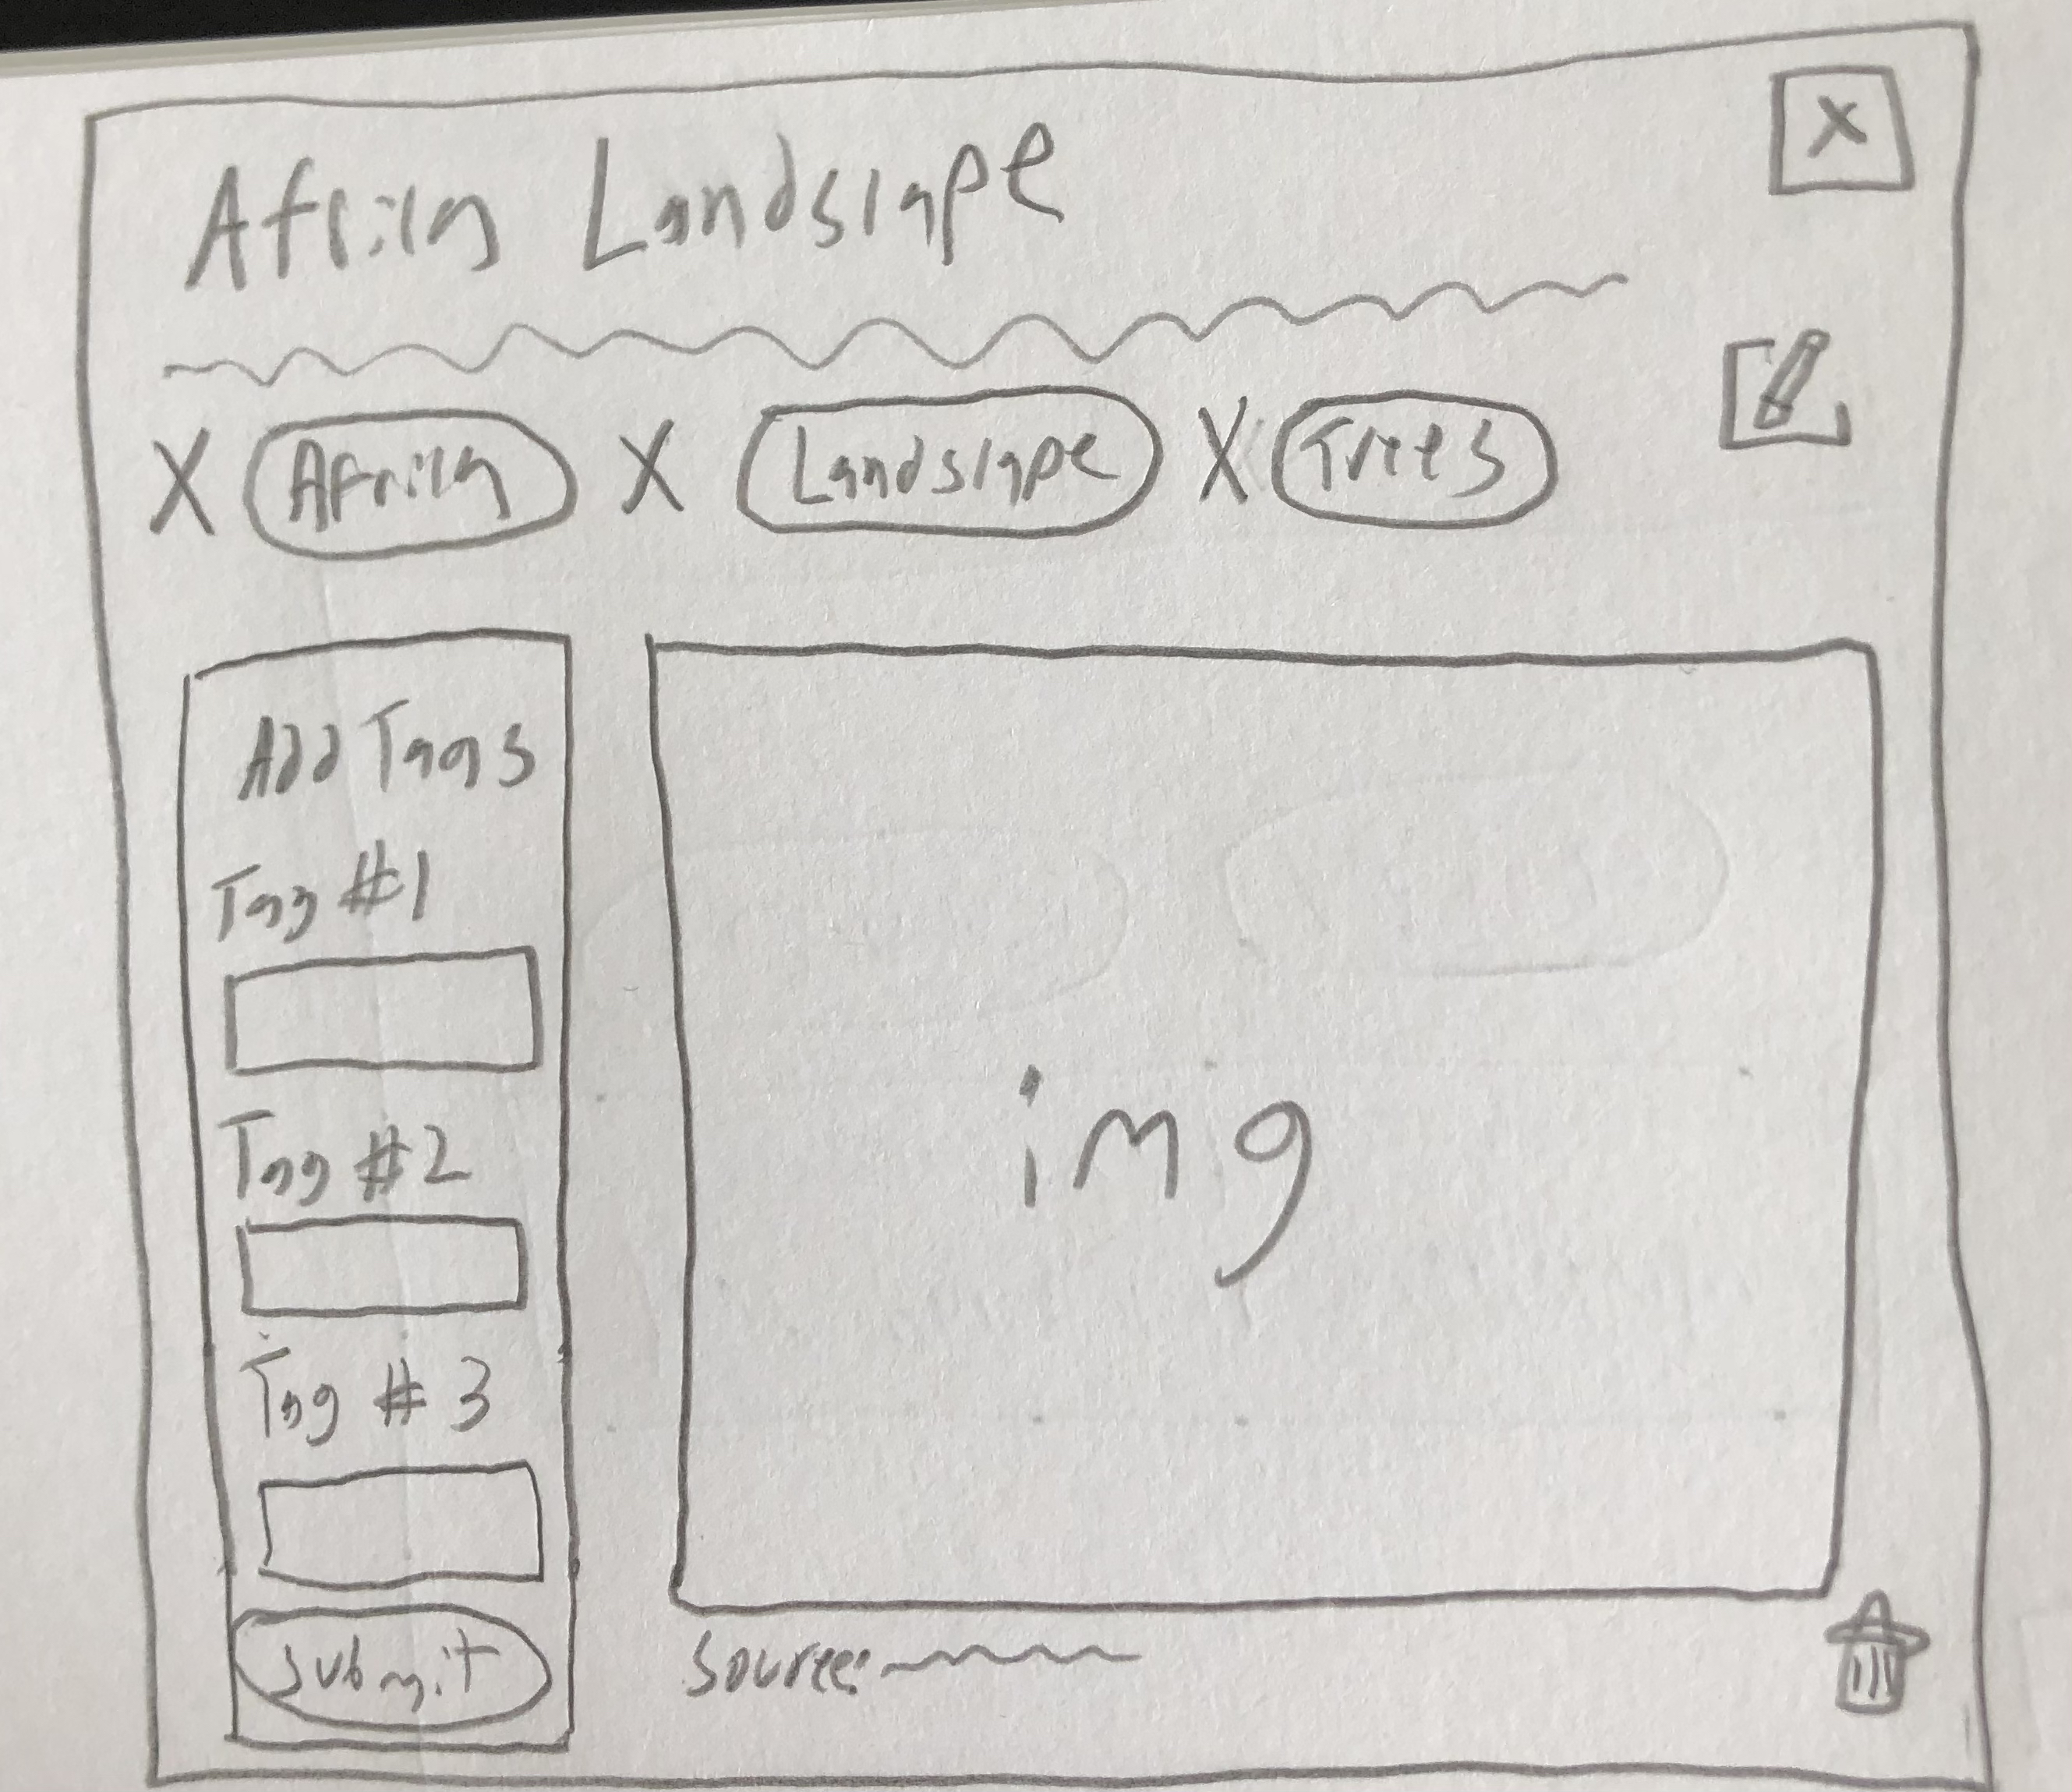 Africa Landscape
X
X Africa X Landscape X Trees
Add Tags
Tag #1
Tag #2
Tag #3
Submit
img
Source: